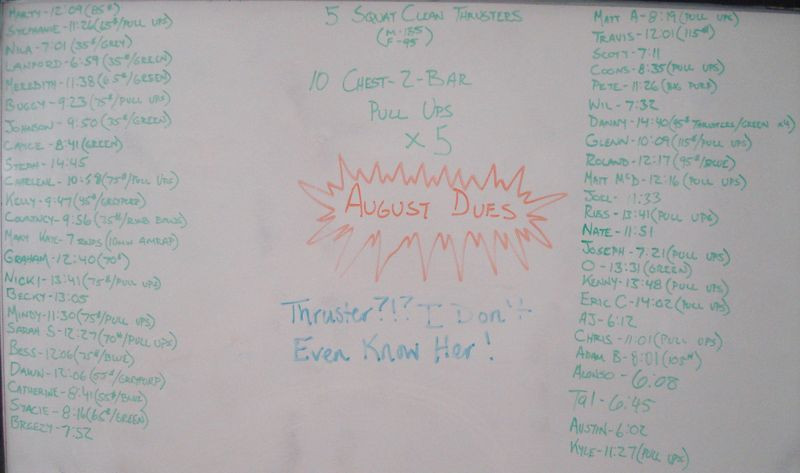 Marty - 12:09 (85#)
Stephanie - 11:26 (65#/Pull Ups)
Nila - 7:01 (35#/Grey)
Lanford - 6:59 (35#/Green)
Meredith - 11:38 (65#/Green)
Buggy - 9:23 (75#/Pull Ups)
Johnson - 9:50 (35#/Green)
Candace - 8:41 (Green)
Steph - 14:45
Charlene - 10:58 (75#/Pull Ups)
Kelly - 9:47 (45#/Gry/Purp)
Courtney - 9:56 (75#/Ring Rows)
Mary Kaye - 7 Rnds (10min AMRAP)
Graham - 12:40 (70#)
Nicki - 13:41 (75#/Pull Ups)
Becky - 13:05
Mindy - 11:30 (75#/Pull Ups)
Sarah S - 12:27 (70#/Pull Ups)
Bess - 12:06 (75#/Blue)
Dawn - 12:06 (55#/Gry/Purp)
Catherine - 8:41 (55#/Blue)
Stacie - 8:16 (65#/Green)
Breezy - 7:52
5 Squat Clean Thrusters
(M-135
F-95)
10 Chest-2-Bar
Pull Ups
x5
August Dues
Thruster?!? I Don't
Even Know Her!
Matt A - 8:19 (Pull Ups)
Travis - 12:01 (115#)
Scott - 7:11
Coons - 8:35 (Pull Ups)
Pete - 11:26 (Big Purp)
Wil - 7:32
Danny - 14:40 (95# Thrusters/Green x4)
Glenn - 10:09 (115#/Pull Ups)
Roland - 12:17 (95#/Blue)
Matt McD - 12:16 (Pull Ups)
Joel - 11:33
Russ - 13:41 (Pull Ups)
Nate - 11:51
Joseph - 7:21 (Pull Ups)
O - 13:31 (Green)
Kenny - 13:48 (Pull Ups)
Eric C - 14:02 (Pull Ups)
AJ - 6:12
Chris - 11:01 (Pull Ups)
Adam B - 8:01 (105#)
Alonso - 6:08
Tal - 6:45
Austin - 6:02
Kyle - 11:27 (Pull Ups)